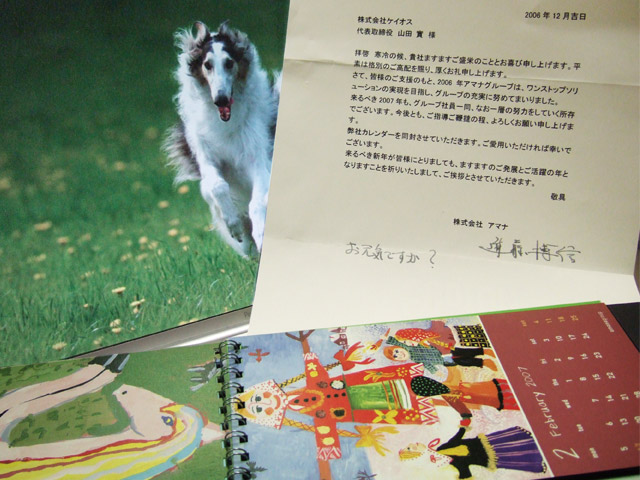 2006 年 12 月吉日
株式会社ケイオス
代表取締役 山田 實 様
拝啓 寒冷の候、貴社ますますご盛栄のこととお喜び申し上げます。平
素は格別のご高配を賜り、厚くお礼申し上げます。
さて、皆様のご支援のもと、2006 年アマナグループは、ワンストップソリ
ューションの実現を目指し、グループの充実に努めてまいりました。
来るべき 2007 年も、グループ社員一同、なお一層の努力をしていく所存
でございます。今後とも、ご指導ご鞭撻の程、よろしくお願い申し上げま
す。
弊社カレンダーを同封させていただきます。ご愛用いただければ幸いで
ございます。
来るべき新年が皆様にとりましても、ますますのご発展とご活躍の年と
なりますことを祈りいたしまして、ご挨拶とさせていただきます。
敬具
株式会社 アマナ
お元気ですか?
2 February 2007